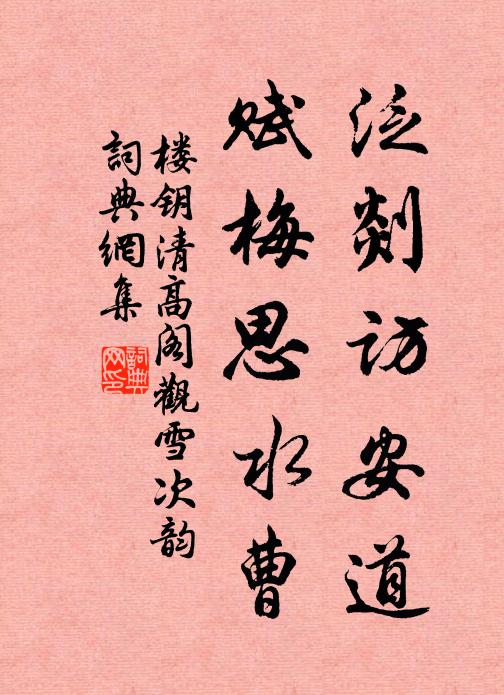 泛剡访安道
赋梅思水曹
楼钥清高阁觀雪次韵
詞典網集
詞典网印